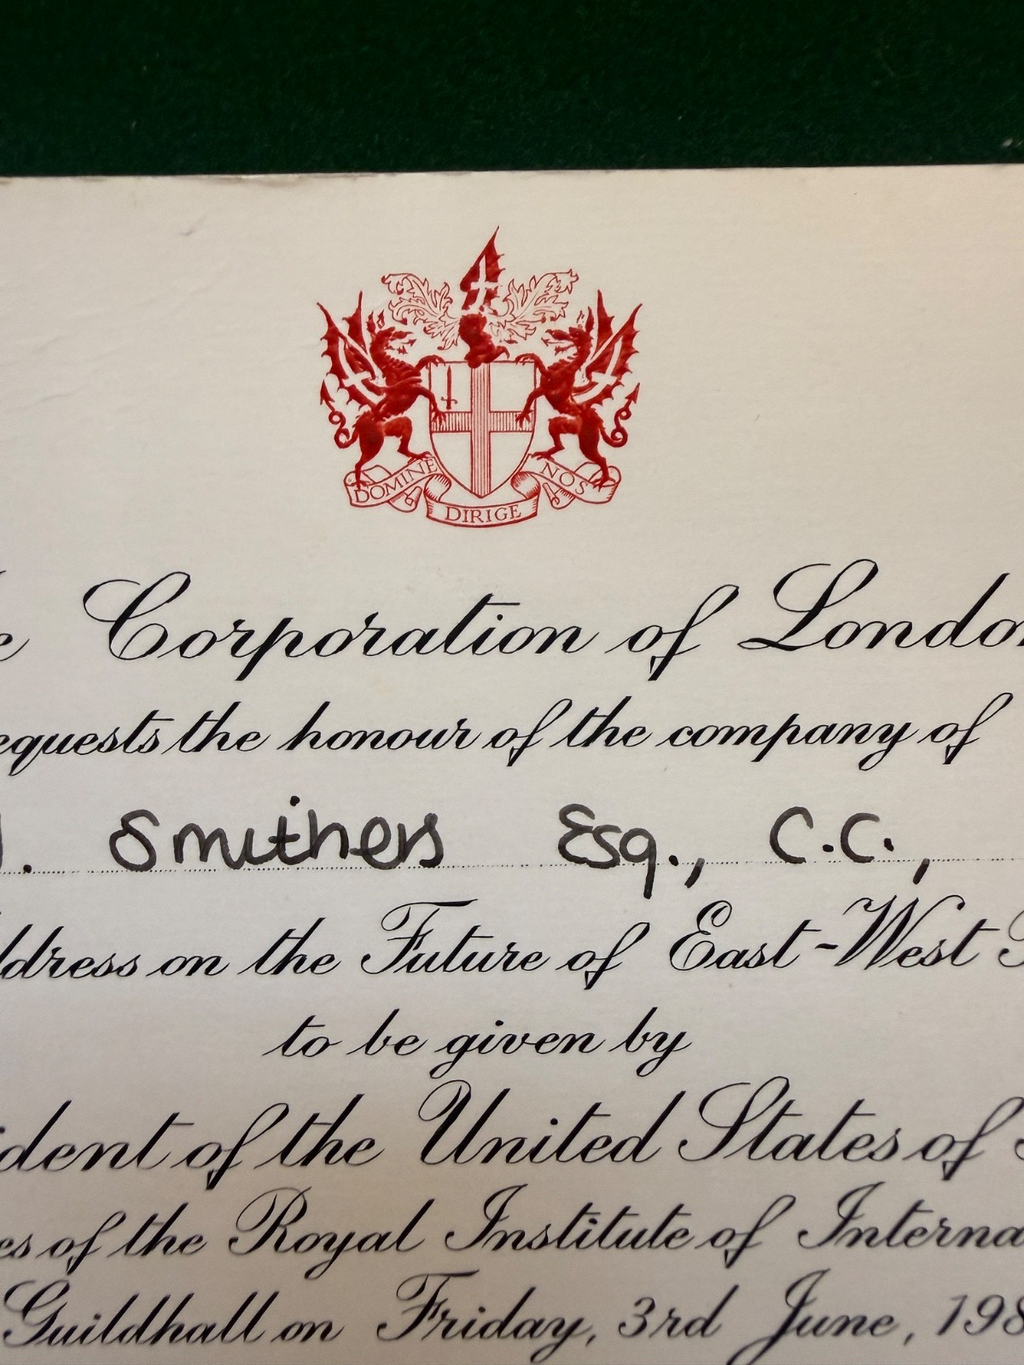 DOMINE DIRIGE NOS
Corporation of London
requests the honour of the company of
. Smithers Esq., C.C.,
Address on the Future of East-West
to be given by
President of the United States of
of the Royal Institute of Interna
Guildhall on Friday, 3rd June, 198